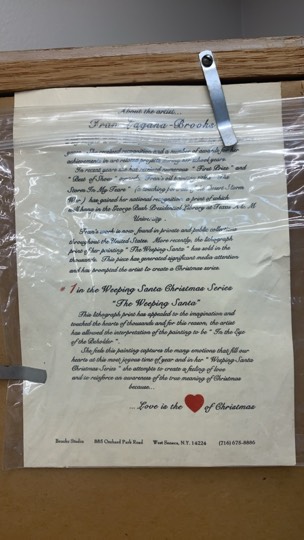 About the artist...
Fran Lagana-Brooks
years. She received recognition and a number of awards for
achievements in art related projects through her school years.
In recent years she has received numerous " First Prize" and
" Best of Show " awards.
Storm In My Tears " Desert Storm
War ) has gained her national recognition, a print of which
will hang in the George Bush Presidential Library at Texas A & M
University .
Fran's work is now found in private and public collections
throughout the United States. More recently, the lithograph
print of her painting " The Weeping Santa " has sold in the
thousands. This piece has generated significant media attention
and has prompted the artist to create a Christmas series.
#1 in the Weeping Santa Christmas Series
"The Weeping Santa"
This lithograph print has appealed to the imagination and
touched the hearts of thousands and for this reason, the artist
has allowed the interpretation of the painting to be " In the Eye
of the Beholder ".
She feels this painting captures the many emotions that fill our
hearts at this most joyous time of year and in her " Weeping-Santa
Christmas-Series " she attempts to create a feeling of love
and to reinforce an awareness of the true meaning of Christmas
because...
... Love is the of Christmas
Brooks Studio 885 Orchard Park Road West Seneca, N.Y. 14224 (716) 675-8866